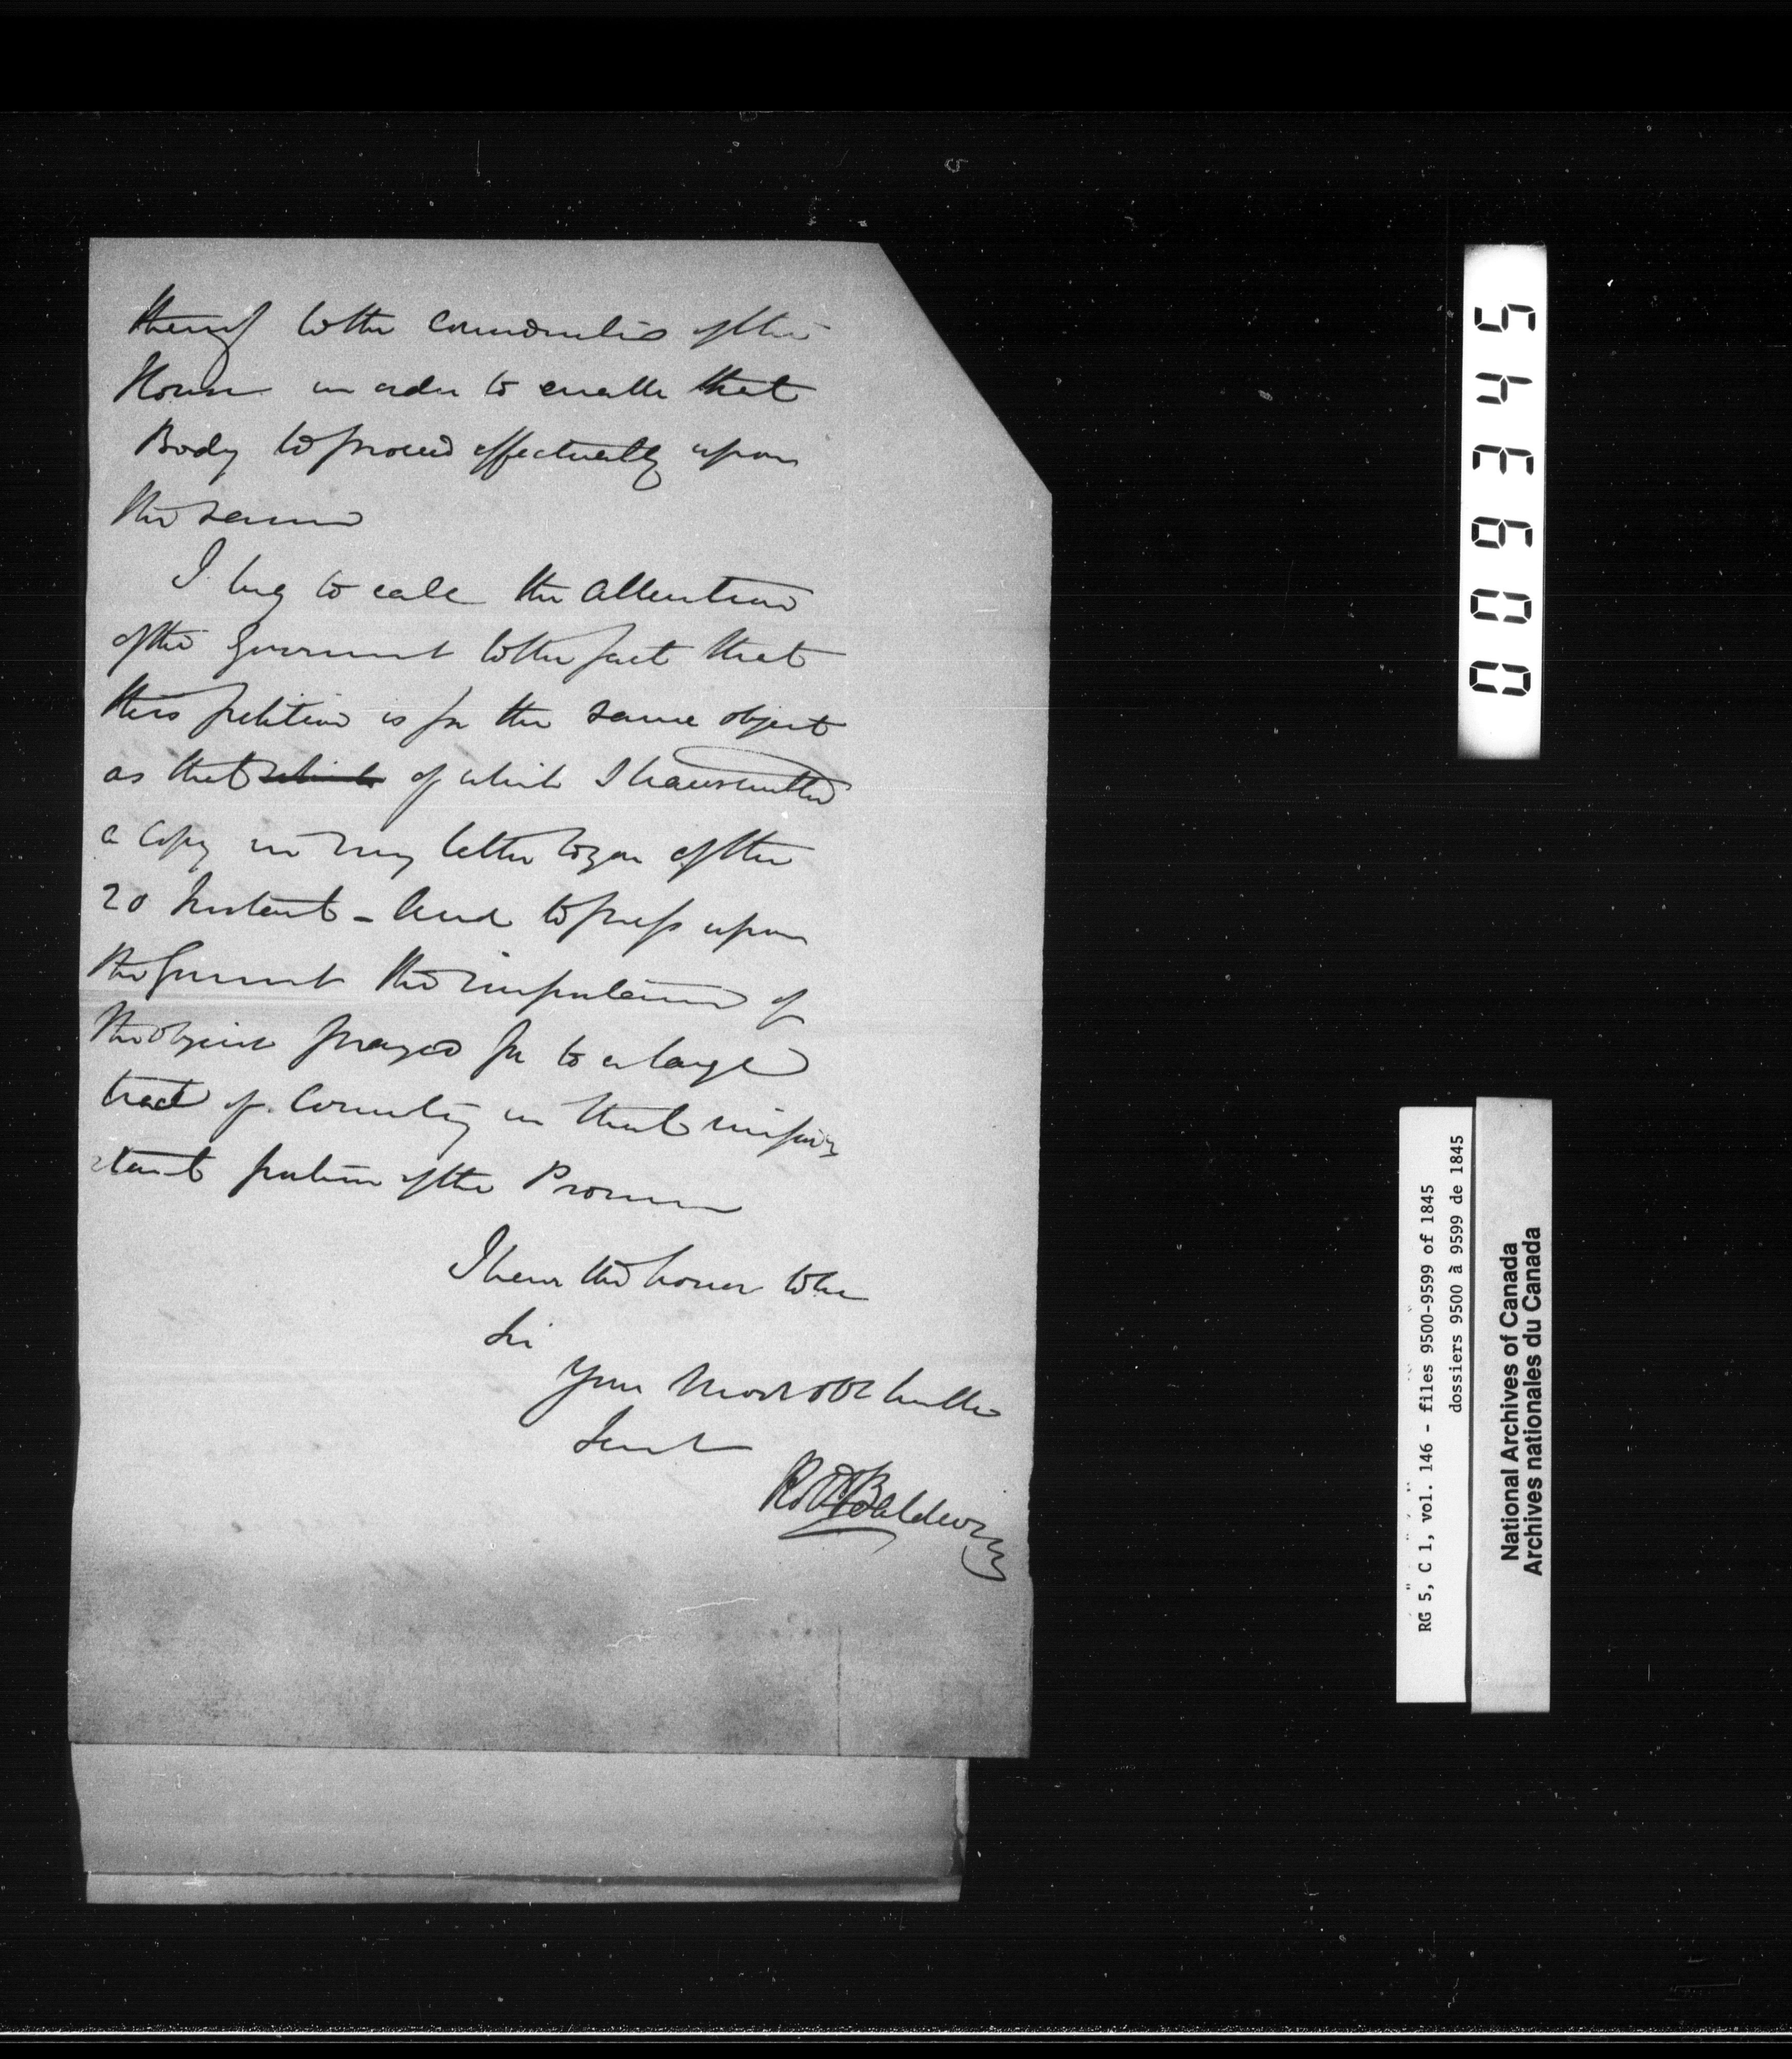 thereof to the consideration of the
House in order to enable that
Body to proceed effectually upon
the same
I beg to call the attention
of the Government to the fact that
this petition is for the same object
as that which of which I transmitted
a Copy in my letter to you of the
20 Instant - And to press upon
the Government the importance of
the object prayed for to a large
tract of Country in that impor
tant portion of the Province
I have the honor to be
Sir
Your Most Obt humble
Servt
Robt Baldwin
009345
RG 5, C 1, vol. 146 - files 9500-9599 of 1845
dossiers 9500 à 9599 de 1845
National Archives of Canada
Archives nationales du Canada